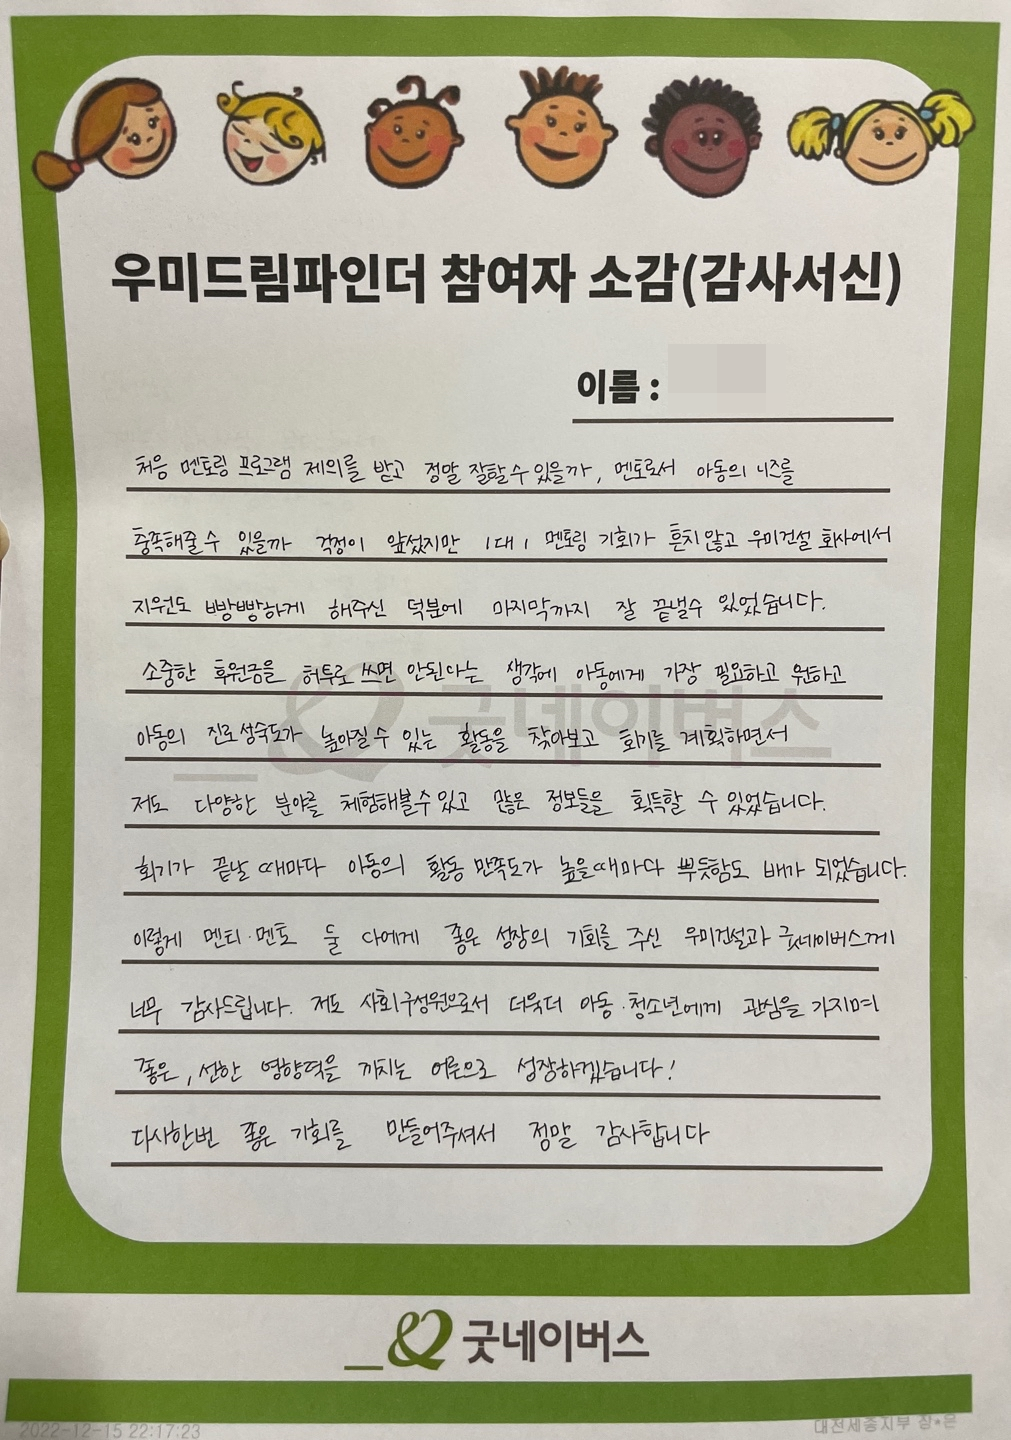 우미드림파인더 참여자 소감(감사서신)
이름 :
처음 멘토링 프로그램 제의를 받고 정말 잘할 수 있을까, 멘토로서 아동의 니즈를
충족해줄 수 있을까 걱정이 앞섰지만 1대1 멘토링 기회가 흔치 않고 우미건설 회사에서
지원도 빵빵하게 해주신 덕분에 마지막까지 잘 끝낼수 있었습니다.
소중한 후원금을 허투로 쓰면 안된다는 생각에 아동에게 가장 필요하고 원하고
아동의 진로성숙도가 높아질 수 있는 활동을 찾아보고 회기를 계획하면서
저도 다양한 분야를 체험해볼 수 있고 많은 정보들을 획득할 수 있었습니다.
회기가 끝날 때마다 아동의 활동 만족도가 높을때마다 뿌듯함도 배가 되었습니다.
이렇게 멘티·멘토 둘 다에게 좋은 성장의 기회를 주신 우미건설과 굿네이버스께
너무 감사드립니다. 저도 사회구성원으로서 더욱더 아동·청소년에게 관심을 가지며
좋은, 선한 영향력을 끼치는 어른으로 성장하겠습니다!
다시한번 좋은 기회를 만들어주셔서 정말 감사합니다
굿네이버스
굿네이버스
2022-12-15 22:17:23
대전세종지부 장*은